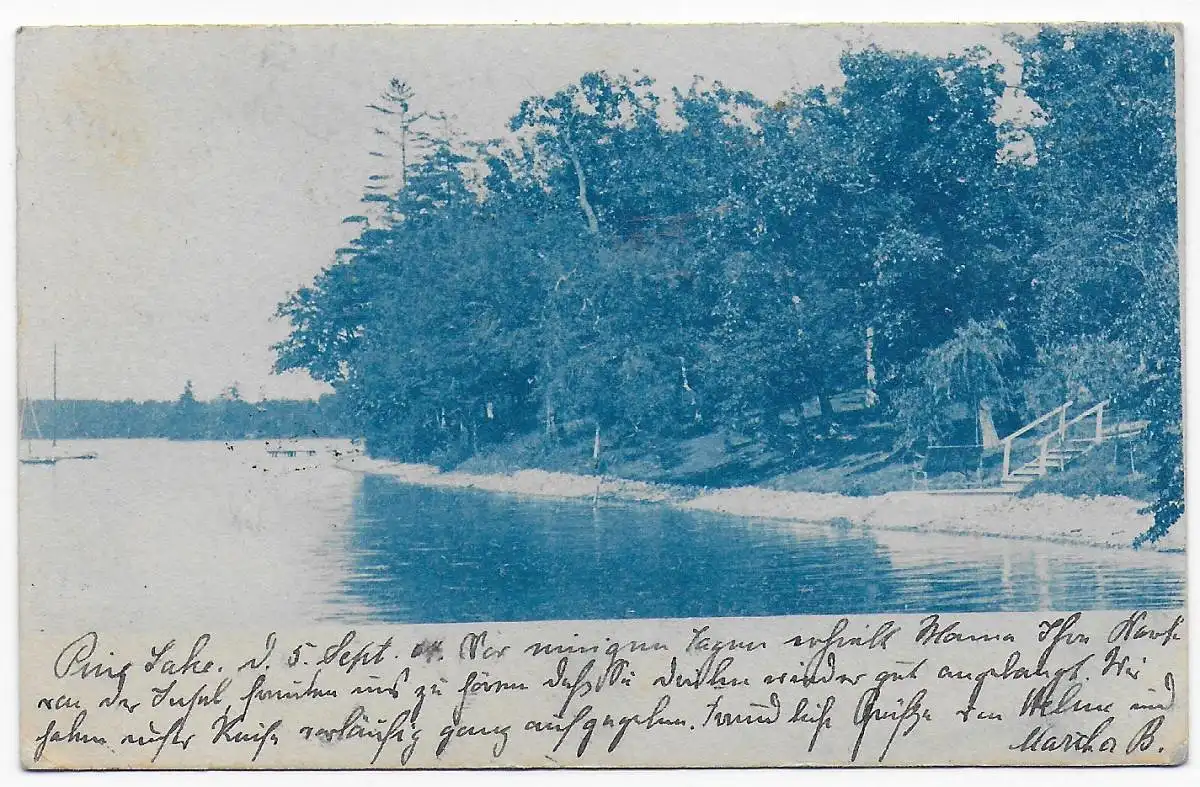 Pine Lake. d. 5. Sept. 04. Vor einigen Tagen erhielt Mama Ihre Karte
von der Insel, freuten uns zu hören daß Sie wieder gut angelangt. Wir
haben unsre Reise vorläufig ganz aufgegeben. Freundliche Grüße von und
Martha B.